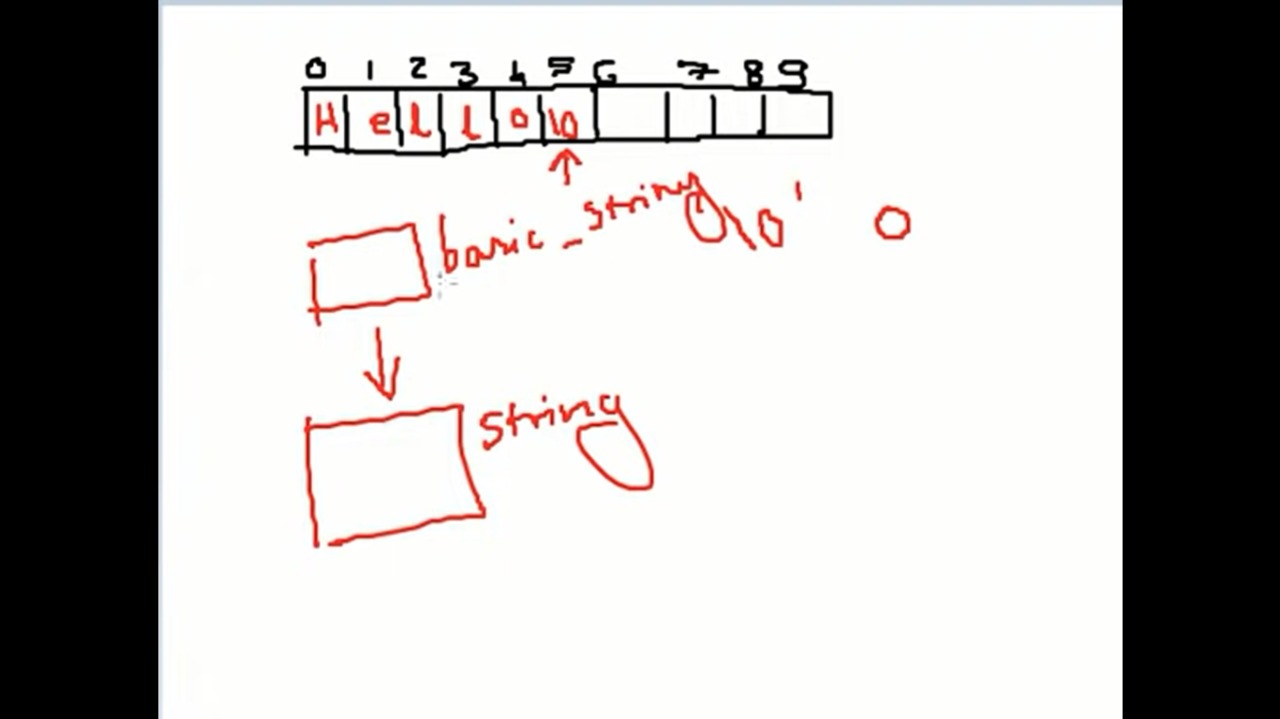 0 1 2 3 4 5 6 7 8 9
H e l l o \0
basic_string \0' 0
string